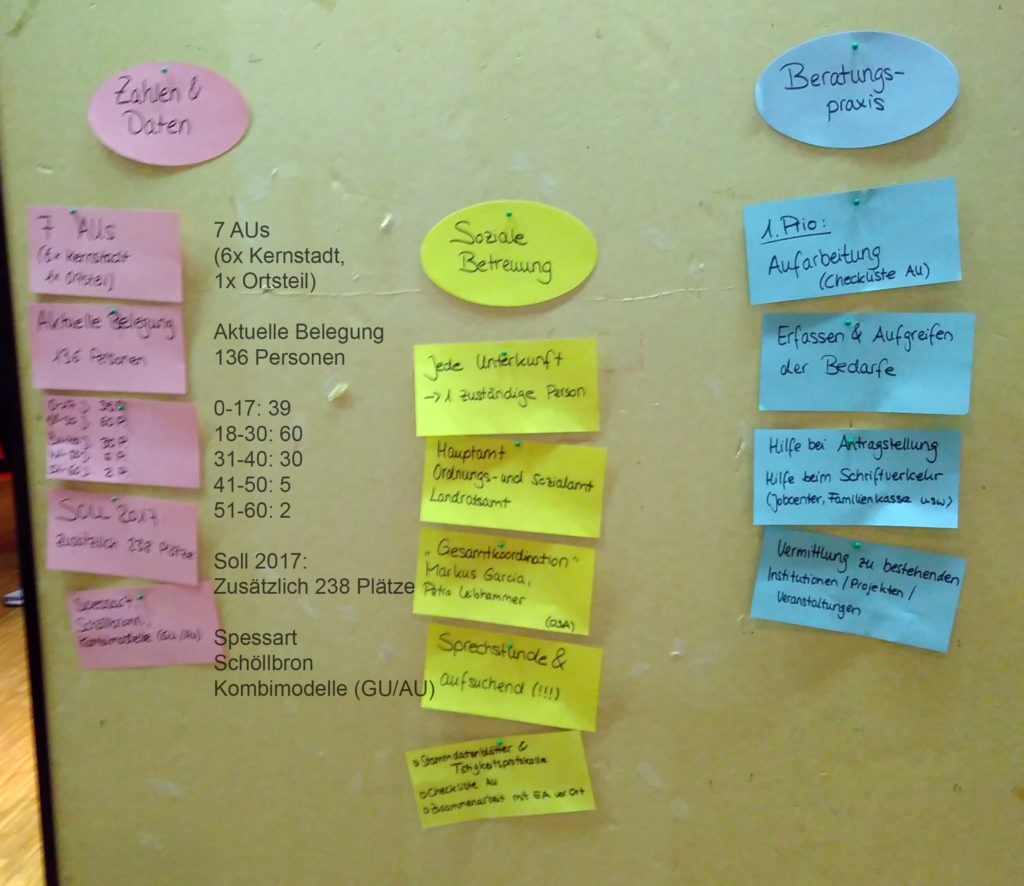 Zahlen &
Daten
7 AUs
(6x Kernstadt
1x Ortsteil)
Aktuelle Belegung
136 Personen
Soll 2017
Zusätzlich 238 Plätze
Spessart
Schöllbronn,
Kombimodelle (GU/AU)
7 AUs
(6x Kernstadt,
1x Ortsteil)
Aktuelle Belegung
136 Personen
0-17: 39
18-30: 60
31-40: 30
41-50: 5
51-60: 2
Soll 2017:
Zusätzlich 238 Plätze
Spessart
Schöllbron
Kombimodelle (GU/AU)
Soziale
Betreuung
Jede Unterkunft
-> 1 zuständige Person
Hauptamt
Ordnungs- und Sozialamt
Landratsamt
„Gesamtkoordination“
Markus Garcia,
Petra
(OSA)
Sprechstunde &
aufsuchend (!!!)
Stammdatenblätter &
Tätigkeitsprotokolle
Checkliste AU
Zusammenarbeit mit EA vor Ort
Beratungs-
praxis
1. Prio:
Aufarbeitung
(Checkliste AU)
Erfassen & Aufgreifen
der Bedarfe
Hilfe bei Antragstellung
Hilfe beim Schriftverkehr
(Jobcenter, Familienkasse usw)
Vermittlung zu bestehenden
Institutionen / Projekten /
Veranstaltungen